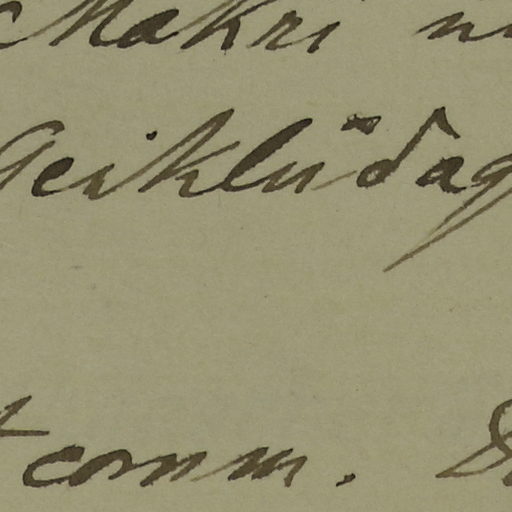 Makri
Geiklüdag
t comm.